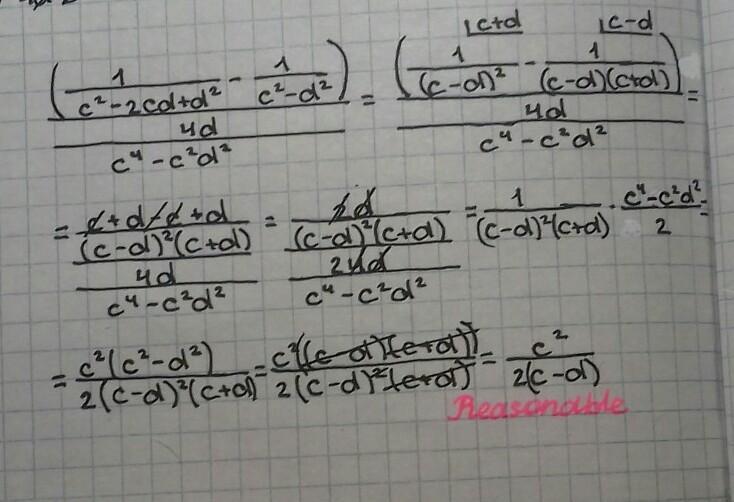 (1/(c²-2cd+d²) - 1/(c²-d²)) / (4d/(c⁴-c²d²)) = (1/(c-d)² ⌊c+d - 1/((c-d)(c+d)) ⌊c-d) / (4d/(c⁴-c²d²)) =
= ((c+d-c+d)/((c-d)²(c+d))) / (4d/(c⁴-c²d²)) = (2d/((c-d)²(c+d))) / (2 4d/(c⁴-c²d²)) = 1/((c-d)²(c+d)) · (c⁴-c²d²)/2 =
= c²(c²-d²)/(2(c-d)²(c+d)) = c²((c-d)(c+d))/(2(c-d)²(c+d)) = c²/(2(c-d))
Reasonable